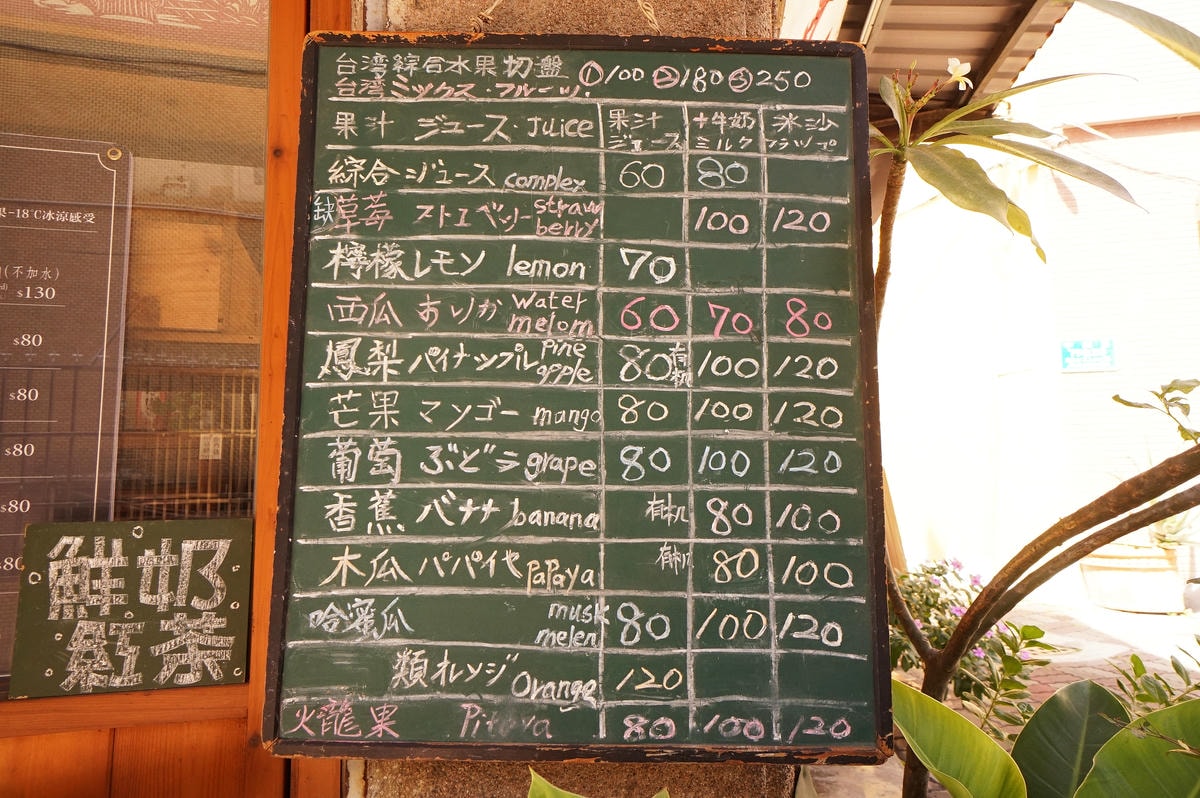 台湾綜合水果切盤 ①100 ②180 ③250
台湾ミックス・フルーツ!
果汁 ジュース・Juice 果汁 ジュース +牛奶 ミルク 冰沙 フラップ
綜合 ジュース complex 60 80
缺 草莓 ストエベッリー straw berry 100 120
檸檬 レモン lemon 70
西瓜 すいか water melom 60 70 80
鳳梨 パイナップル pine apple 80 有机 100 120
芒果 マンゴー mango 80 100 120
葡萄 ぶどう grape 80 100 120
香蕉 バナナ banana 有机 80 100
木瓜 パパイヤ PaPaya 有机 80 100
哈蜜瓜 musk melen 80 100 120
類 オレンジ Orange 120
火龍果 Pitaya 80 100 120
果-18℃冰涼感受
(不加水)
$130
$80
$80
$80
$80
$80
鮮奶
紅茶